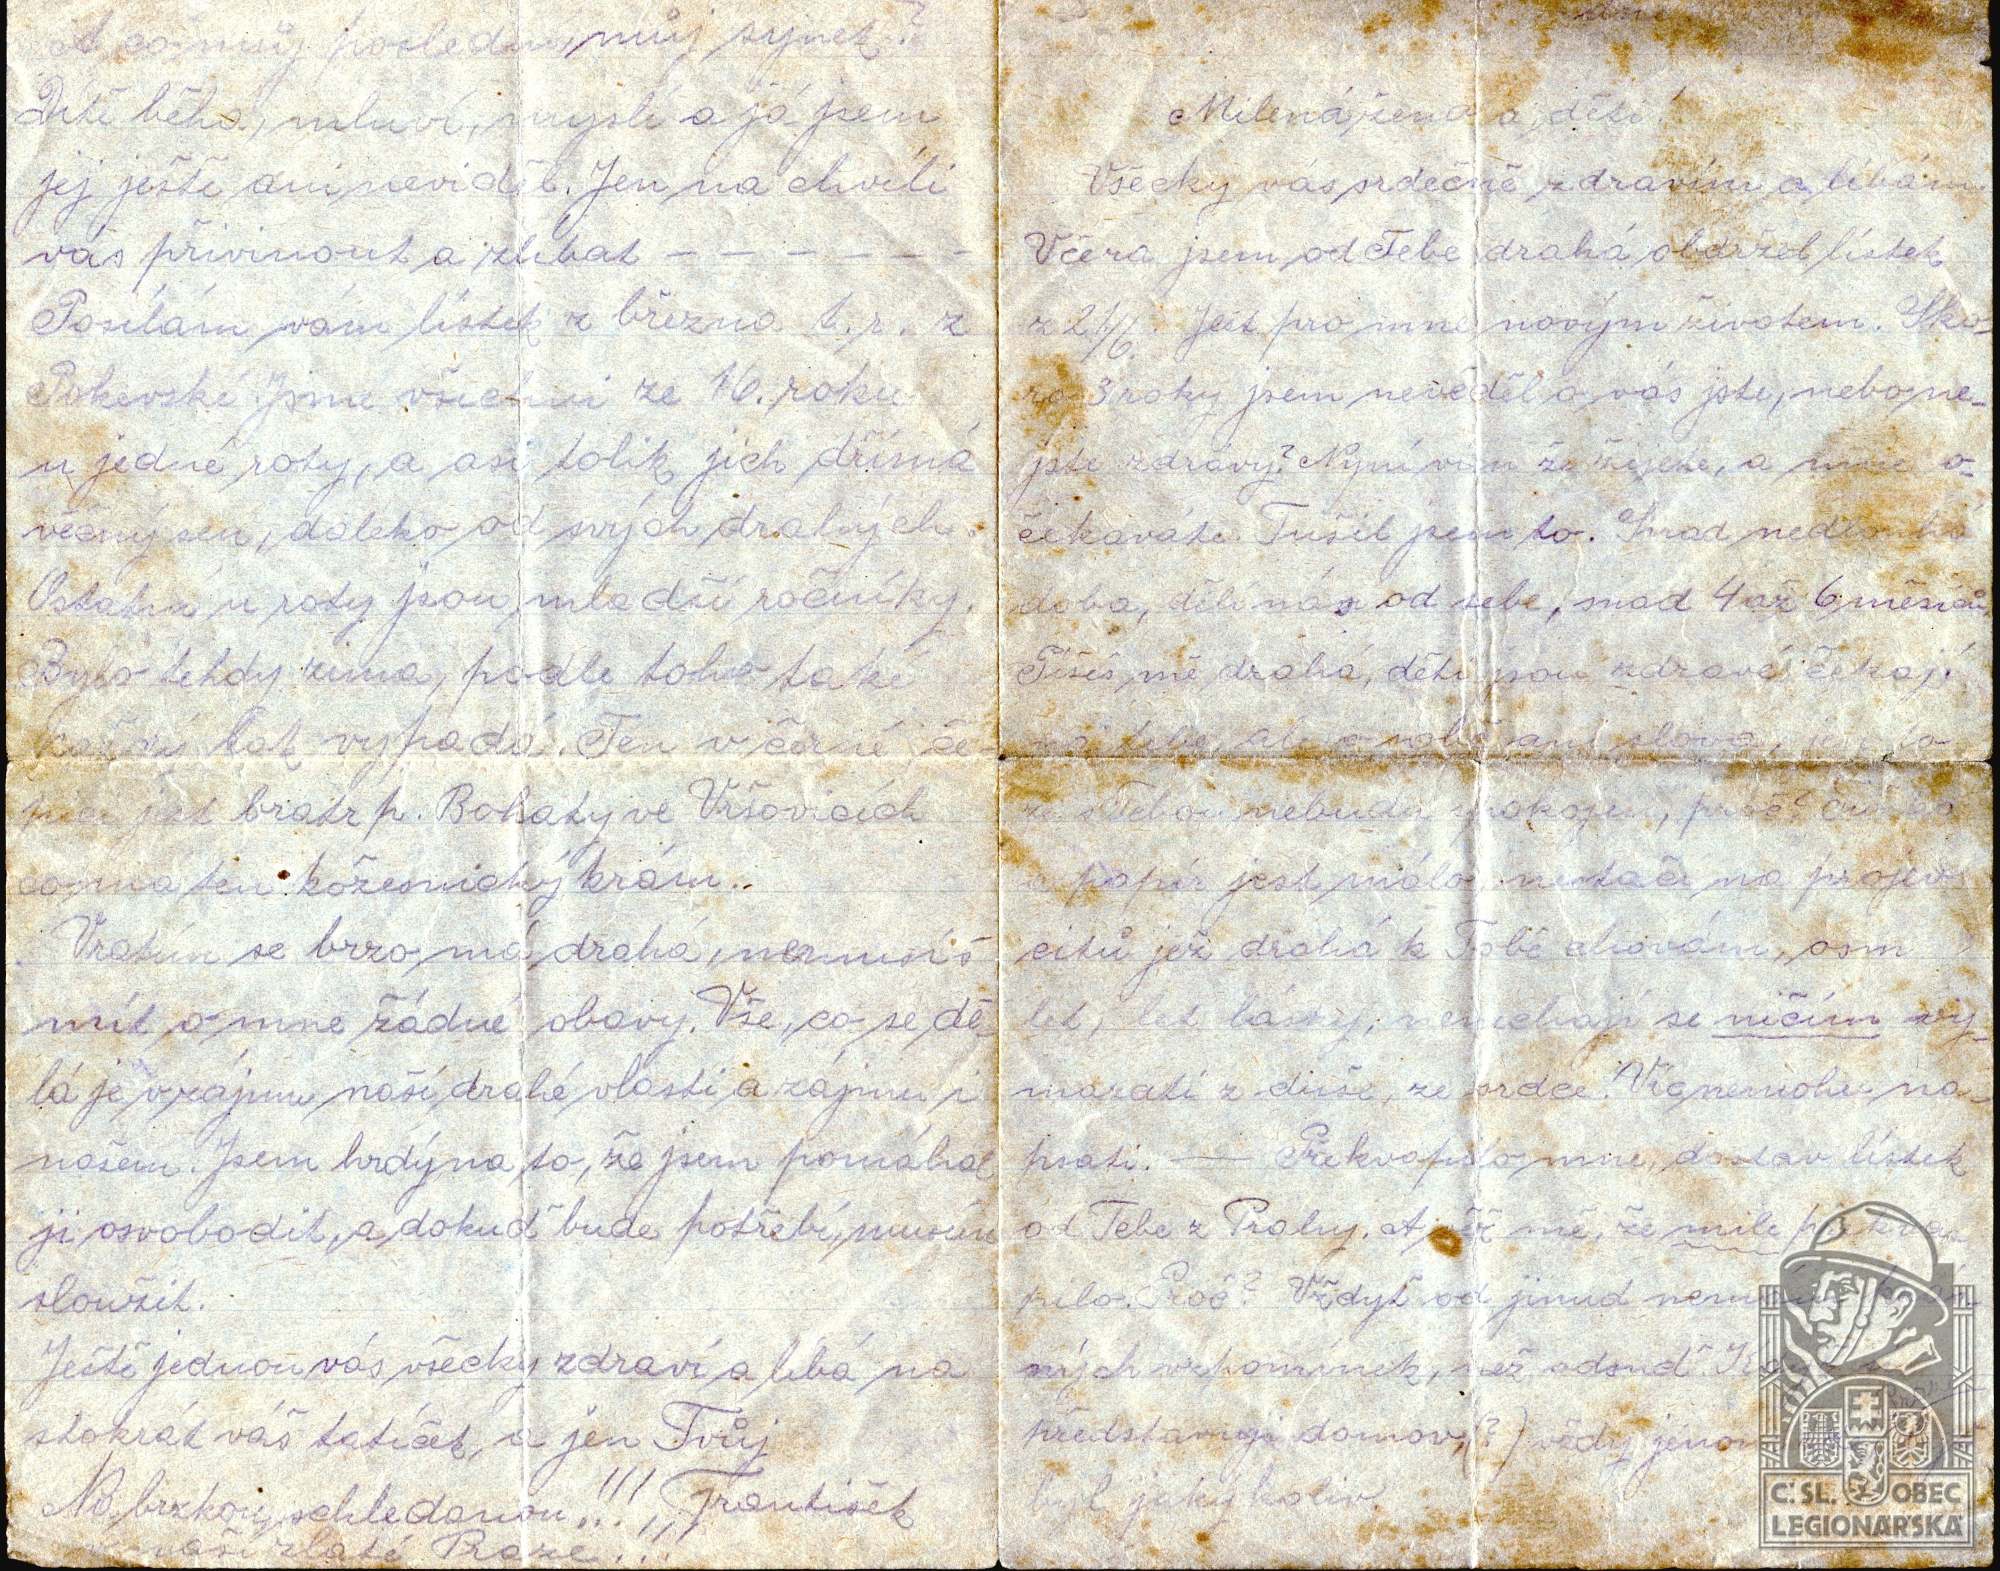 Milená ženo a děti!
Všecky vás srdečně zdravím a líbám
Včera jsem od Tebe drahá obdržel lístek
z 21/6. Jest pro mne novým životem. Sko-
ro 3 roky jsem nevěděl o vás jste, nebo ne-
jste zdrávy? Nyní vím že žijete, a mne o-
čekáváte. Tušil jsem to. Snad nedlouhá
doba, dělí nás od sebe, snad 4 až 6 měsíců,
Píšeš mě drahá, děti jsou zdravé čekají
ani slova,
s Tebou nebudu spokojen, proč?
a papír jest málo, nestačí na projev
citů jež drahá k Tobě chovám, osm
let, let lásky, nenechají se ničím vy-
mazati z duše, ze srdce. Víc nemohu na-
psati. — Překvapilo mne, dostav lístek
od Tebe z Prahy. A věř mě, že mile překva-
pilo. Proč? Vždyť od jinud
ných vzpomínek, než odsud.
představuji domov, (?) vždy jenom
byl jakýkoliv.
A co můj poslední, můj synek?
Dítě běhá, mluví, myslí a já jsem
jej ještě ani neviděl. Jen na chvíli
vás přivinout a zlíbat – – – – – –
Posílám vám lístek z března t. r. z
Pokevské. Jsme všichni ze 16. roku
u jedné roty, a asi tolik jich dřímá
věčný sen, daleko od svých drahých.
Ostatní u roty jsou mladší ročníky.
Bylo tehdy zima, podle toho také
každý tak vypadá. Ten v černé če-
pici jest bratr p. Bohaty ve Vršovicích
co má ten kožešnický krám.
Vrátím se brzo, má drahá, nemusíš
mít o mne žádné obavy. Vše, co se dě
lá je v zájmu naší drahé vlasti a zájmu i
našem. Jsem hrdý na to, že jsem pomáhal
ji osvobodit, a dokud bude potřebí, musím
sloužit.
Ještě jednou vás všecky zdraví a líbá na
stokrát váš tatíček, a jen Tvůj
Na brzkou schledanou!!! František
v naší zlaté Praze!!!
C.SL. OBEC
LEGIONÁŘSKÁ